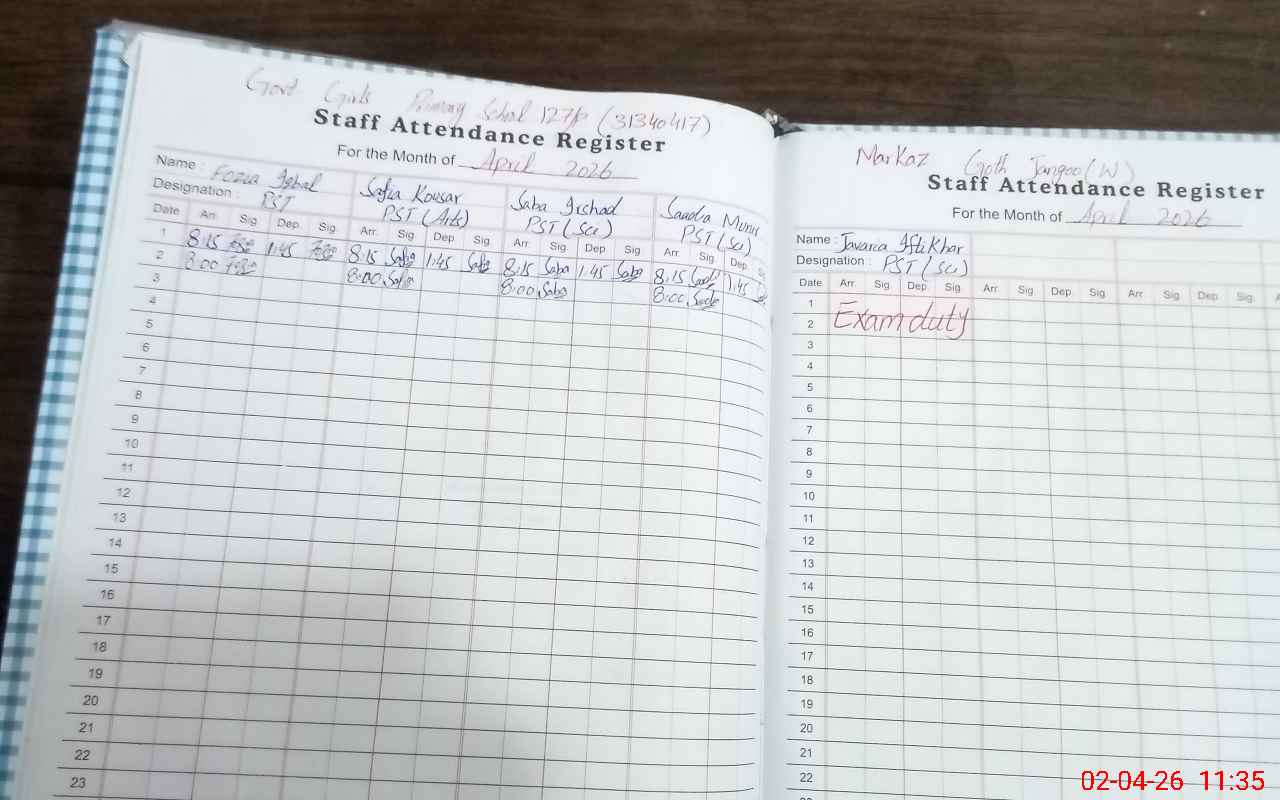 Govt Girls Primary School 127/P (31340417)
Staff Attendance Register
For the Month of April 2026
Name : Fozia Iqbal Safia Kousar Saba Irshad Saadia Munir
Designation : PST PST (Arts) PST (Sci) PST (Sci)
Date Arr. Sig Dep. Sig. Arr. Sig. Dep Sig. Arr Sig. Dep Sig Arr Sig. Dep
1 8:15 1:45 8:15 Safia 1:45 Safia 8:15 Saba 1:45 Saba 8:15 1:45
2 8:00 8:00 Safia 8:00 Saba 8:00
3
4
5
6
7
8
9
10
11
12
13
14
15
16
17
18
19
20
21
22
23
Markaz Goth Jangoo (W)
Staff Attendance Register
For the Month of April 2026
Name : Javaria Iftikhar
Designation : PST (Sci)
Date Arr. Sig. Dep Sig. Arr. Sig Dep. Sig. Arr Sig. Dep Sig.
1 Exam duty
2
3
4
5
6
7
8
9
10
11
12
13
14
15
16
17
18
19
20
21
22
02-04-26 11:35